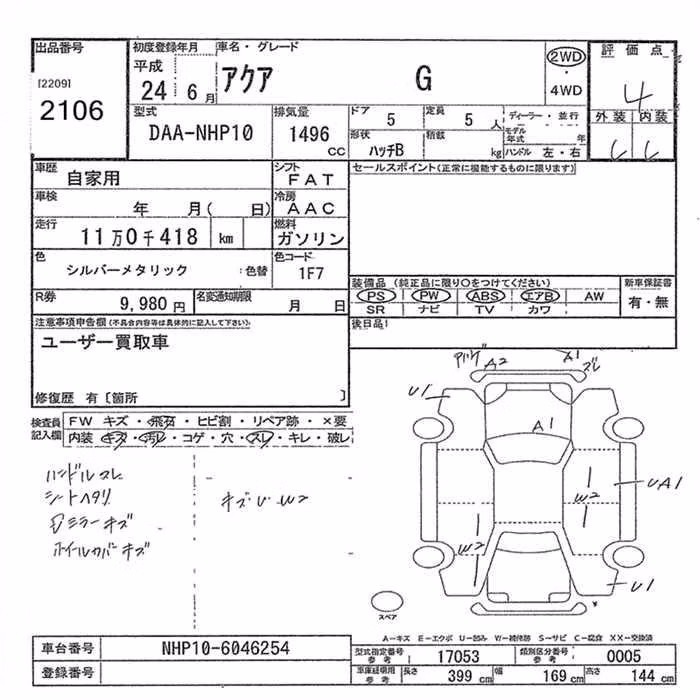 出品番号
[2209]
2106
初度登録年月
平成
24 6月
車名・グレード
アクア G
2WD
・
4WD
評価点
4
外装 内装
型式
DAA-NHP10
排気量
1496
CC
ドア
5
定員
5 人
ディーラー・並行
形状
ハッチB
積載
kg
モデル年式 年
ハンドル 左・右
車歴
自家用
シフト
FAT
セールスポイント(正常に機能するものに限ります)
車検
年 月( 日)
冷房
AAC
走行
11万0千418 km
燃料
ガソリン
色
シルバーメタリック :色替
色コード
1F7
装備品 (純正品に限り○をつけてください)
PS PW ABS エアB AW
SR ナビ TV カワ
新車保証書
有・無
R券
9,980 円
名変通知期限
月 日
後日品!
注意事項申告欄(不具合内容等は具体的に記入して下さい)
ユーザー買取車
修復歴 有〔箇所 〕
検査員
記入欄
FW キズ・飛石・ヒビ割・リペア跡・×要
内装 キズ・汚レ・コゲ・穴・スレ・キレ・破レ
ハンドルスレ
シートヘタリ
ミラーキズ
ホイールカバーキズ
キズU W2
A2
A1
ズレ
U1
A1
W2
UA1
W2
U1
スペア
A-キズ E-エクボ U-凹み W-補修跡 S-サビ C-腐食 XX-交換済
車台番号
NHP10-6046254
登録番号
型式指定番号
参考
17053
類別区分番号
参考
0005
車庫証明用
参考
長さ
399 cm
幅
169 cm
高さ
144 cm